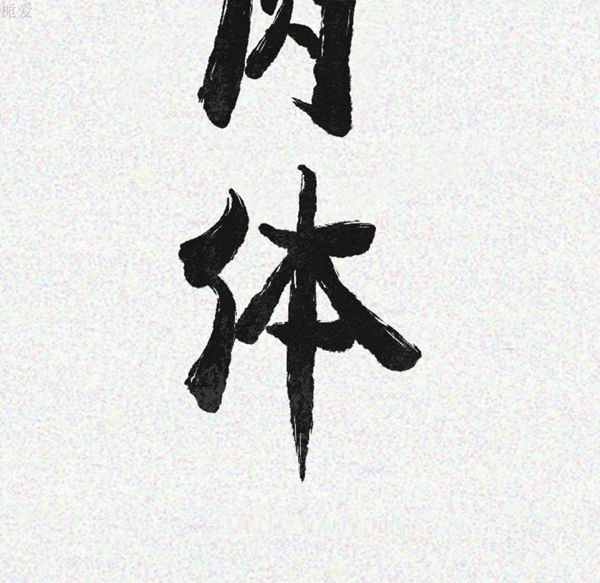 栀爱
体